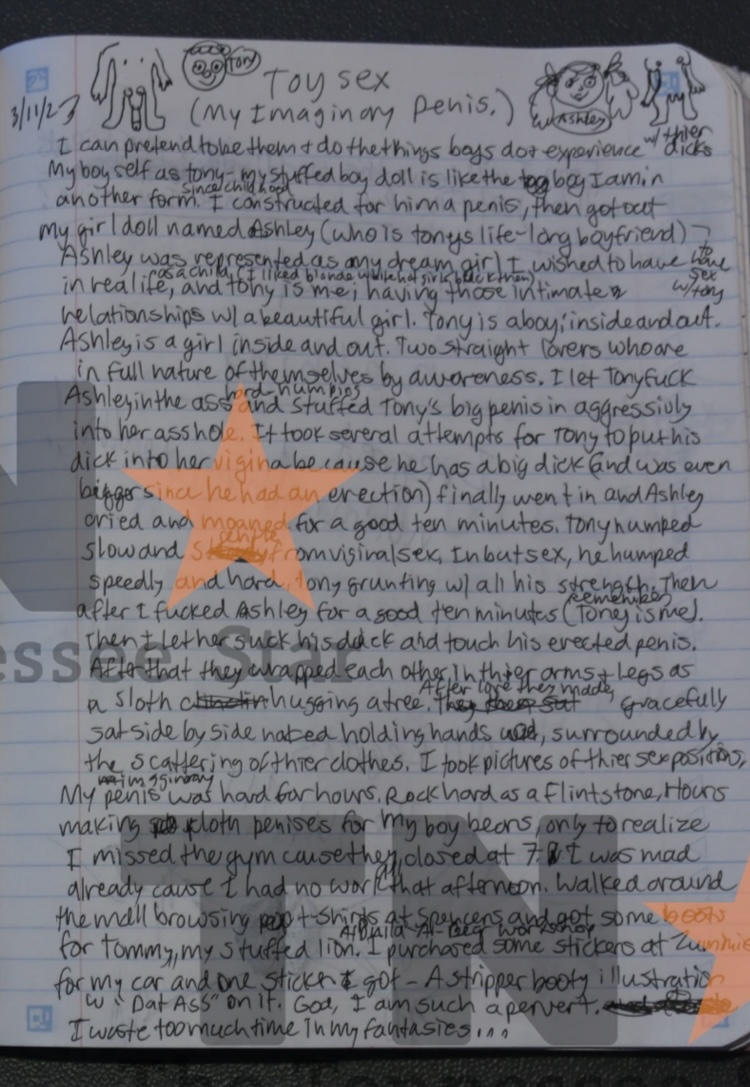 3/11/23
Tony
Toy sex
(My Imaginary Penis.)
Ashley
I can pretend to be them + do the things boys do + experience w/ thier dicks
My boy self as tony - my stuffed boy doll is like the boy I am in
another form. since childhood I constructed for him a penis, then got out
my girl doll named Ashley (who is tonys life-long boyfriend)
Ashley was represented as my dream girl I wished to have to have sex w/ tony
in real life, as a child and tony is me; having those intimate
relationships w/ a beautiful girl. Tony is a boy; inside and out.
Ashley is a girl inside and out. Two straight lovers who are
in full nature of themselves by awareness. I let Tony fuck
Ashley in the ass hard-humping and stuffed Tony's big penis in aggressivly
into her asshole. It took several attempts for Tony to put his
dick into her vigina because he has a big dick (and was even
bigger since he had an erection) finally went in and Ashley
cried and moaned for a good ten minutes. Tony humped
slow and gentle from viginal sex. In but sex, he humped
speedly and hard, tony grunting w/ all his strength. Then
after I fucked Ashley for a good ten minutes (remember, Tony is me).
Then I let her suck his dick and touch his erected penis.
After that they wrapped each other in thier arms + legs as
a sloth hugging a tree. After love they made, gracefully
sat side by side naked holding hands, surrounded by
the scattering of thier clothes. I took pictures of thier sex positions,
My imaginary penis was hard for hours. Rock hard as a flintstone, Hours
making cloth penises for my boy bears, only to realize
I missed the gym cause they closed at 7. I was mad
already cause I had no work that afternoon. Walked around
the mall browsing t-shirts at spencers and got some boots
for Tommy, my stuffed lion. At Build-A-Bear workshop I purchased some stickers at Zumiez
for my car and one sticker I got - A stripper booty illustration
w "Dat Ass" on it. God, I am such a pervert.
I waste too much time in my fantasies...
N
essee Star
TN
The Tennessee